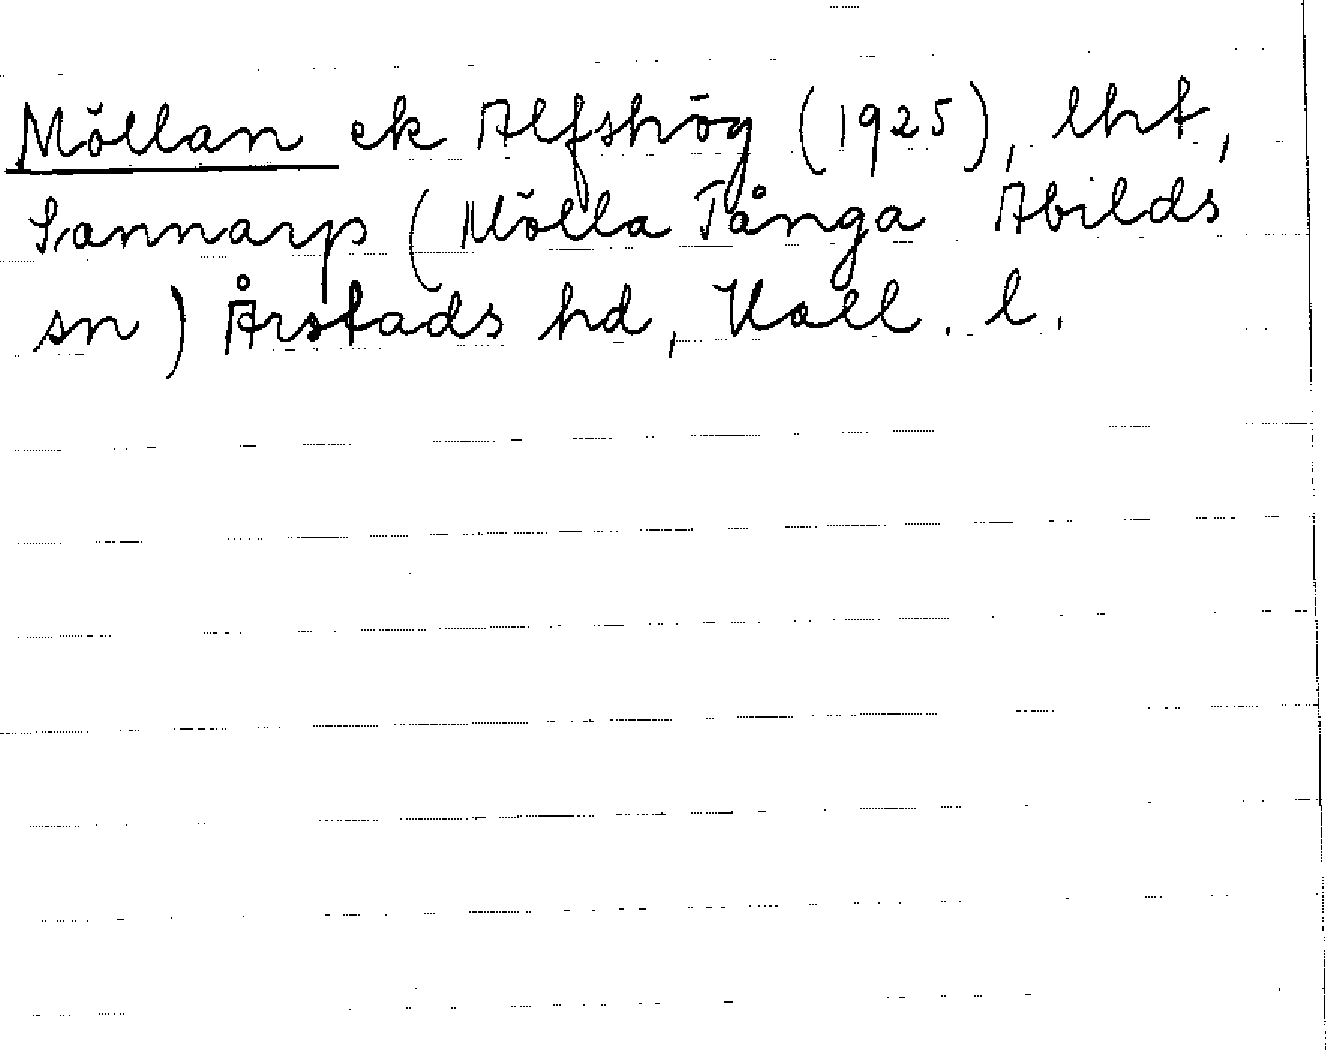 Möllan ek Alfshög (1925), lht,
Sannarp (Mölla Tånga Abilds
sn) Årstads hd, Hall. l.